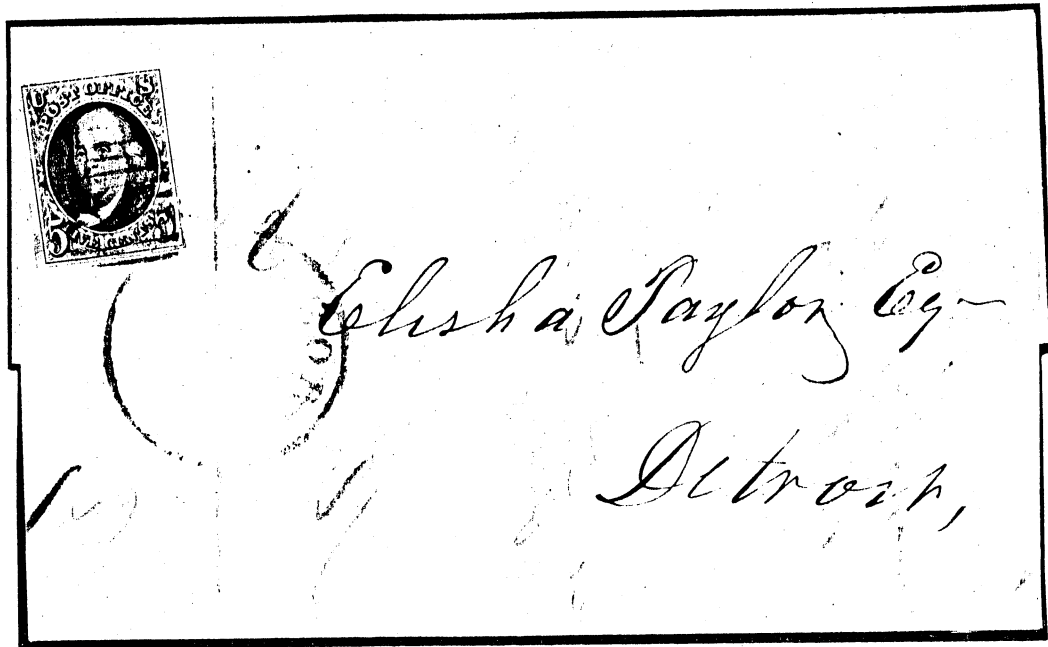 U S
POST OFFICE
FIVE CENTS
Elisha Taylor Eq
Detroit,